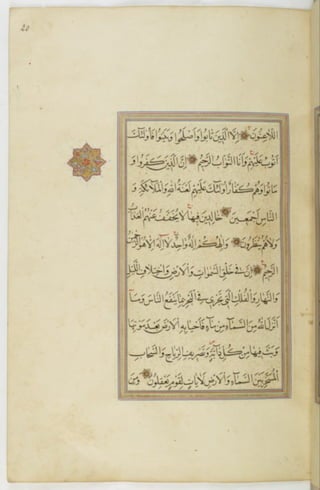 20
اللاعنون الا الذین تابوا واصلحوا وبینوا فاولئک
اتوب علیهم وانا التواب الرحیم ان الذین کفروا و
ماتوا وهم کفار اولئک علیهم لعنة الله والملائکة و
الناس اجمعین خالدین فیها لا یخفف عنهم العذاب
ولا هم ینظرون والهکم اله واحد لا اله الا هو الرحمن
الرحیم ان فی خلق السموات والارض واختلاف اللیل
والنهار والفلک التی تجری فی البحر بما ینفع الناس وما
انزل الله من السماء من ماء فاحیا به الارض بعد موتها
وبث فیها من کل دابة وتصریف الریاح والسحاب
المسخر بین السماء والارض لآیات لقوم یعقلون ومن